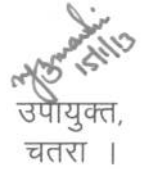 15/1/13
उपायुक्त,
चतरा ।